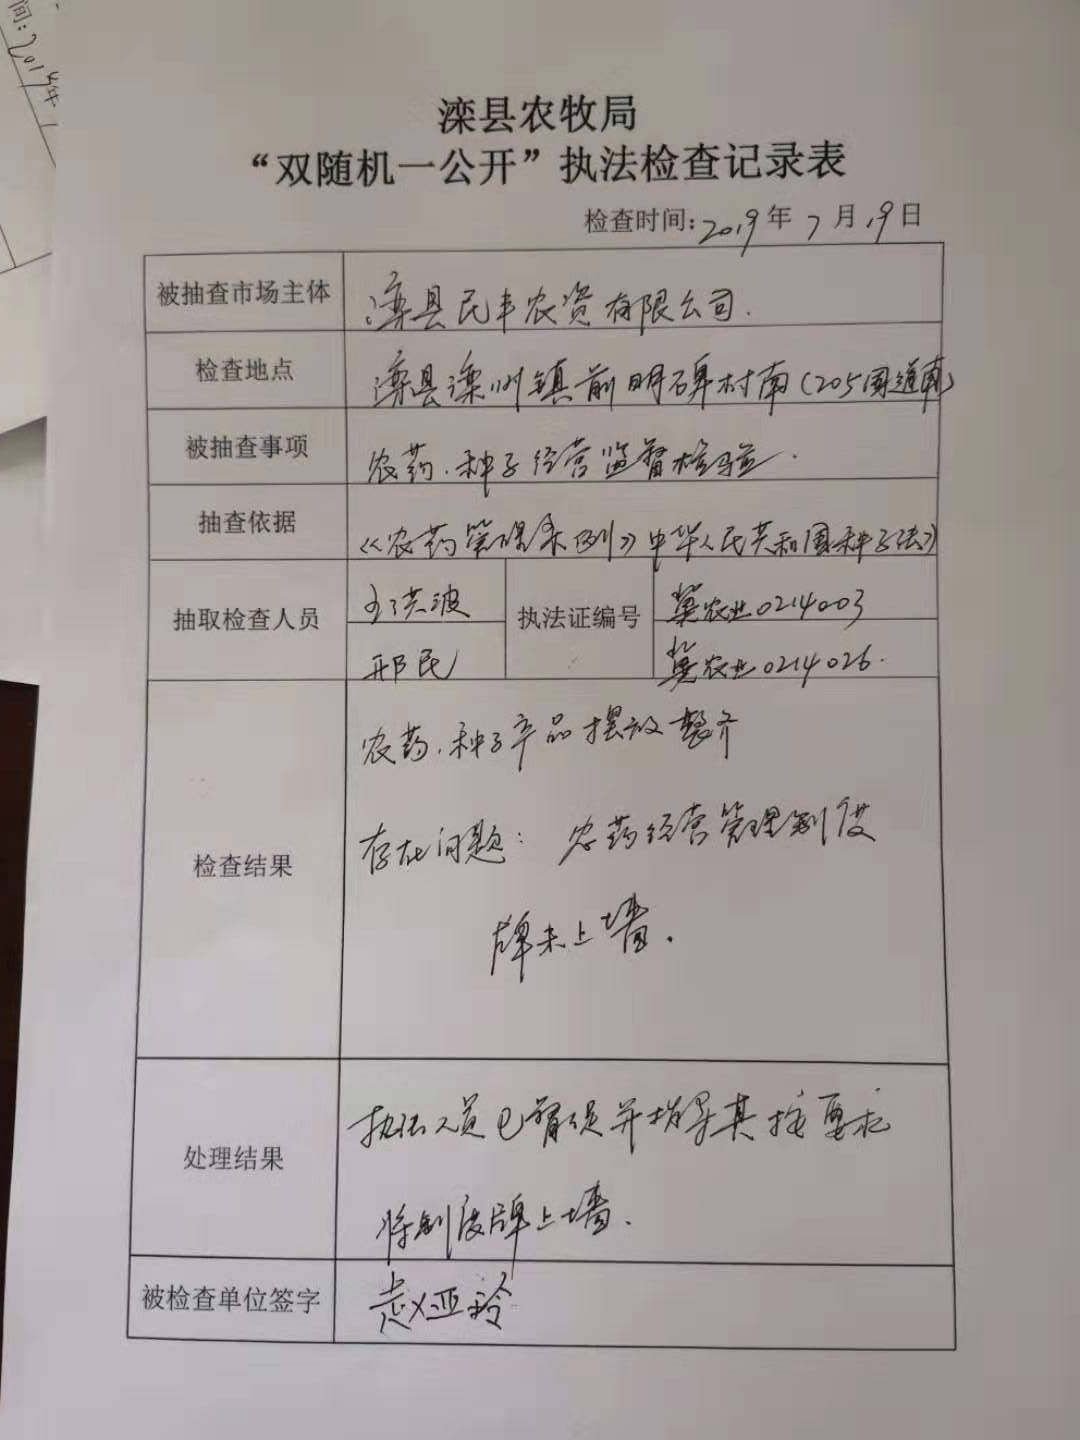 间：2019年
滦县农牧局
“双随机一公开”执法检查记录表
检查时间：2019年7月19日
被抽查市场主体 滦县民丰农资有限公司.
检查地点 滦县滦州镇前明碑村南（205国道南）
被抽查事项 农药、种子经营监督检验.
抽查依据 《农药管理条例》中华人民共和国种子法》
抽取检查人员 王洪波 执法证编号 冀农业0214003
邢民 冀农业0214026.
检查结果 农药、种子产品摆放整齐
存在问题：农药经营管理制度
牌未上墙.
处理结果 执法人员已督促并指导其按要求
将制度牌上墙.
被检查单位签字 赵亚玲